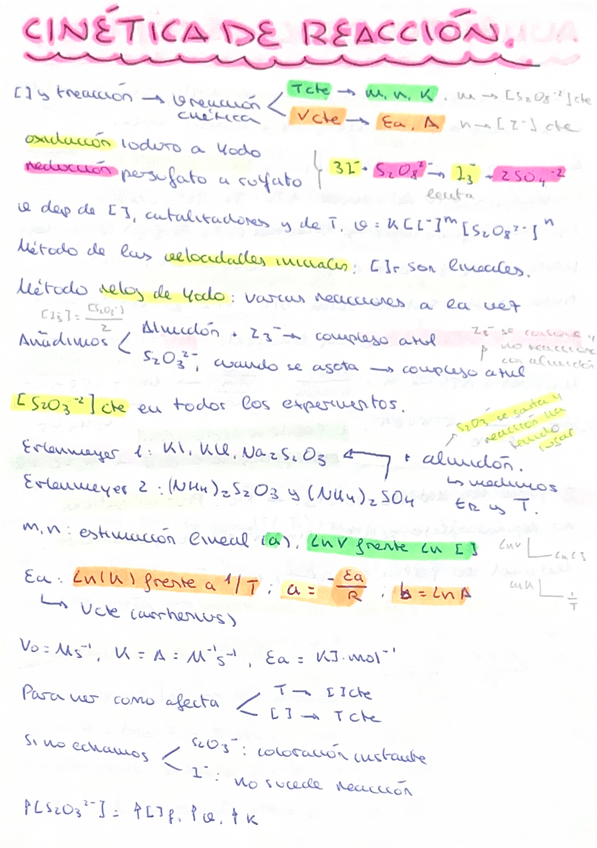 CINÉTICA DE REACCIÓN.
[] y treacción → v reacción cinética < Tcte → m, n, K. m → [S₂O₈⁻²] cte
Vcte → Ea, A n → [I⁻] cte
oxidación ioduro a yodo
reducción persulfato a sulfato } 3I⁻ + S₂O₈²⁻ → I₃⁻ + 2SO₄⁻²
lenta
v dep de [], catalizadores y de T. v = K[I⁻]ᵐ [S₂O₈²⁻]ⁿ
Método de las velocidades iniciales: []r son lineales.
Método reloj de yodo: varias reacciones a la vez
[I₃⁻] = [S₂O₃²⁻]/2
Añadimos < Almidón + I₃⁻ → complejo azul
S₂O₃²⁻, cuando se agota → complejo azul
I₃⁻ se consume y no reacciona con almidón
[S₂O₃⁻²] cte en todos los experimentos.
S₂O₃⁻ se gasta y reacción ha
Erlenmeyer 1: KI, KCl, Na₂S₂O₃ + almidón.
Erlenmeyer 2: (NH₄)₂S₂O₈ y (NH₄)₂SO₄
↳ medimos tR y T.
m, n: estimación lineal (a), LnV frente Ln []
LnV Ln[]
Ea: Ln(K) frente a 1/T; a = -Ea/R, b = LnA
LnK 1/T
↳ Vcte (arrhenius)
V₀ = Ms⁻¹, K = A = M⁻¹s⁻¹, Ea = KJ·mol⁻¹
Para ver como afecta < T → []cte
[] → Tcte
Si no echamos < S₂O₃⁻: coloración instante
I⁻: no sucede reacción
↑[S₂O₃²⁻] = ↑[]f, ↑v, ↑K